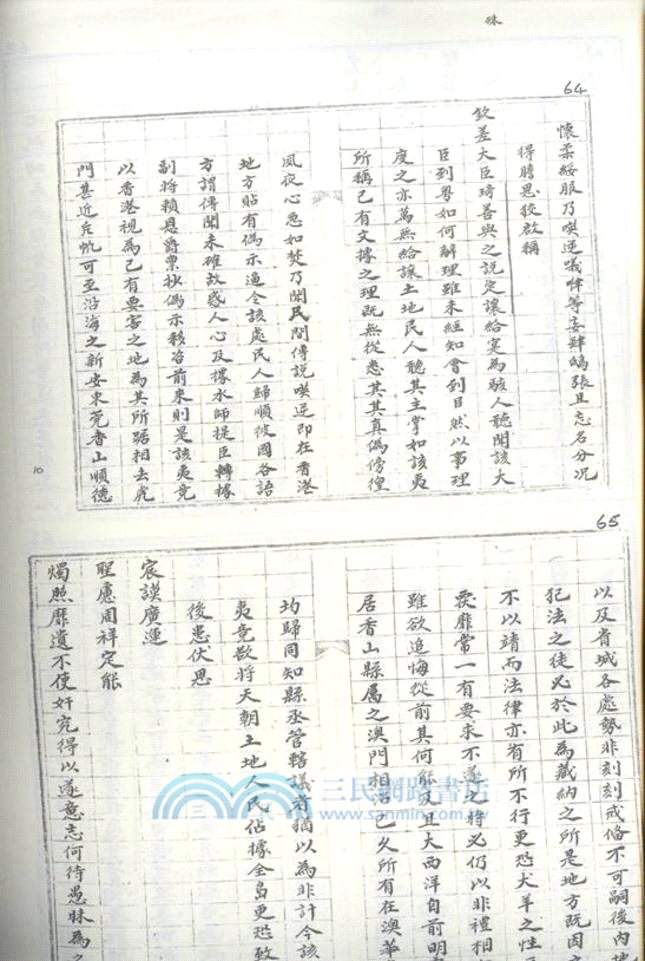 硃
64
懷柔綏服乃㗲逆嘰啤等妄肆鴟張且忘名分況
得膽思狡啟稱
欽差大臣琦善與之說定讓給寔為駭人聽聞該大
臣到粵如何辦理雖未經知會到臣然以事理
度之亦萬無給讓土地民人聽其主掌如該夷
所稱已有文據之理既無從悉其真偽傍徨
夙夜心急如焚乃聞民間傳說㗲逆即在香港
地方貼有偽示逼令該處民人歸順彼國各語
方謂傳聞未確故惑人心及據水師提臣轉據
副將賴恩爵票抄偽示移咨前來則是該夷竟
以香港視為己有要害之地為其所踞相去虎
門甚近片帆可至沿海之新安東莞香山順德
10
65
以及省城各處勢非刻刻戒備不可嗣後內地
犯法之徒必於此為藏納之所是地方既因之
不以靖而法律亦有所不行更恐犬羊之性
靡常一有要求不遂之時必仍以非禮相
雖欲追悔從前其何能及且大西洋自前明
居香山縣屬之澳門相沿已久所有在澳華
均歸同知縣丞管轄議者猶以為非計今該
夷竟欲將天朝土地人民佔據全島更恐致
後患伏思
宸謨廣運
聖慮周祥定能
燭照靡遺不使奸宄得以遂意志何待愚昧為之
三民網路書店
www.sanmin.com.tw